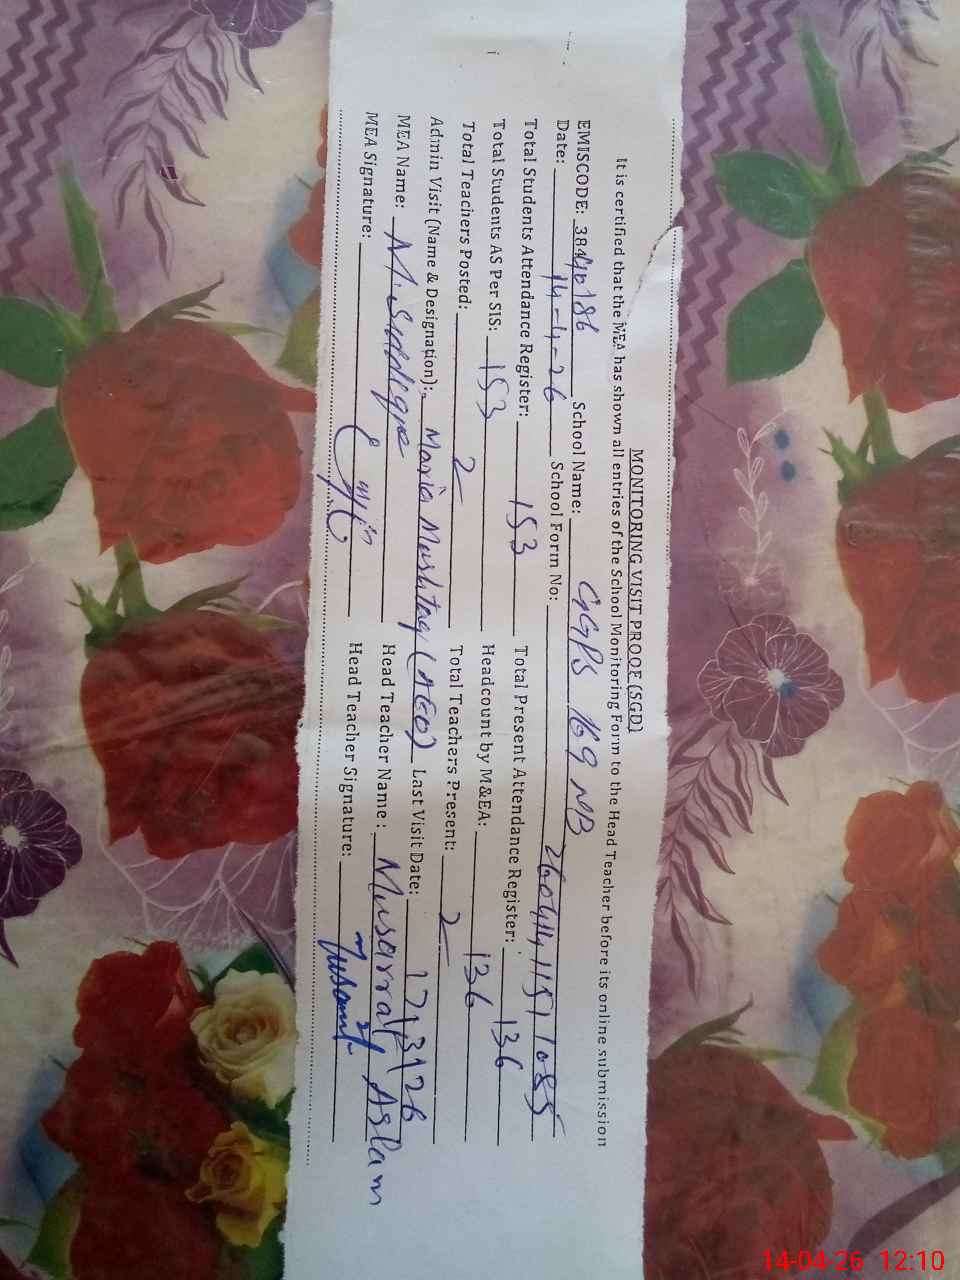 MONITORING VISIT PROOF (SGD)
It is certified that the MEA has shown all entries of the School Monitoring Form to the Head Teacher before its online submission
EMISCODE: 38440186 School Name: GGPS 169 NB
Date: 14-4-26 School Form No: 2604141151 1085
Total Students Attendance Register: 153 Total Present Attendance Register: 136
Total Students AS Per SIS: 153 Headcount by M&EA: 136
Total Teachers Posted: 2 Total Teachers Present: 2
Admin Visit (Name & Designation): Maria Mushtaq (AEO) Last Visit Date: 17/3/26
MEA Name: M. Siddique Head Teacher Name: Musarrat Aslam
MEA Signature: Head Teacher Signature:
14-04-26 12:10